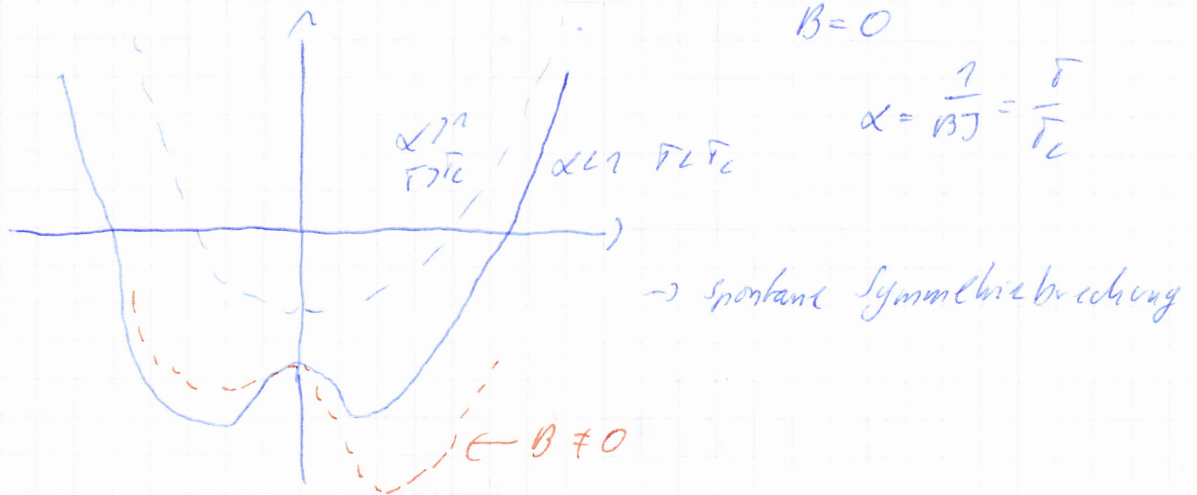 B = 0
α = 1/βJ = T/Tc
α > 1
T > Tc
α < 1 T < Tc
→ spontane Symmetriebrechung
← B ≠ 0